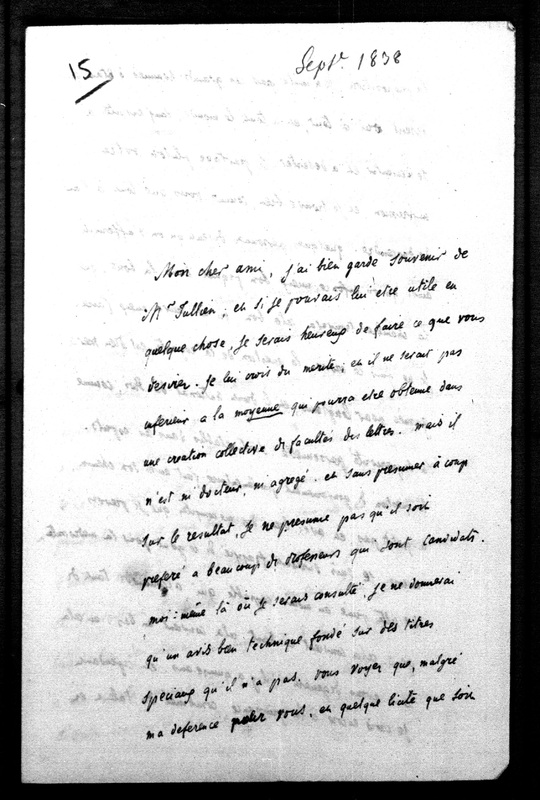 15
Septr 1838
Mon cher ami, j'ai bien gardé souvenir de
Mr Jullien ; et si je pouvais lui etre utile en
quelque chose, je serais heureux de faire ce que vous
desirez. Je lui crois du merite ; et il ne serait pas
inferieur a la moyenne qui pourra etre obtenue dans
une creation collective de facultés des lettres. mais il
n'est ni docteur, ni agregé. et sans presumer à coup
sur le resultat, je ne presume pas qu'il soit
preferé a beaucoup de professeurs qui sont candidats.
moi-même là où je serais consulté, je ne donnerai
qu'un avis bien technique fondé sur des titres
speciaux qu'il n'a pas. vous voyez que, malgré
ma deference pour vous, en quelque que soit